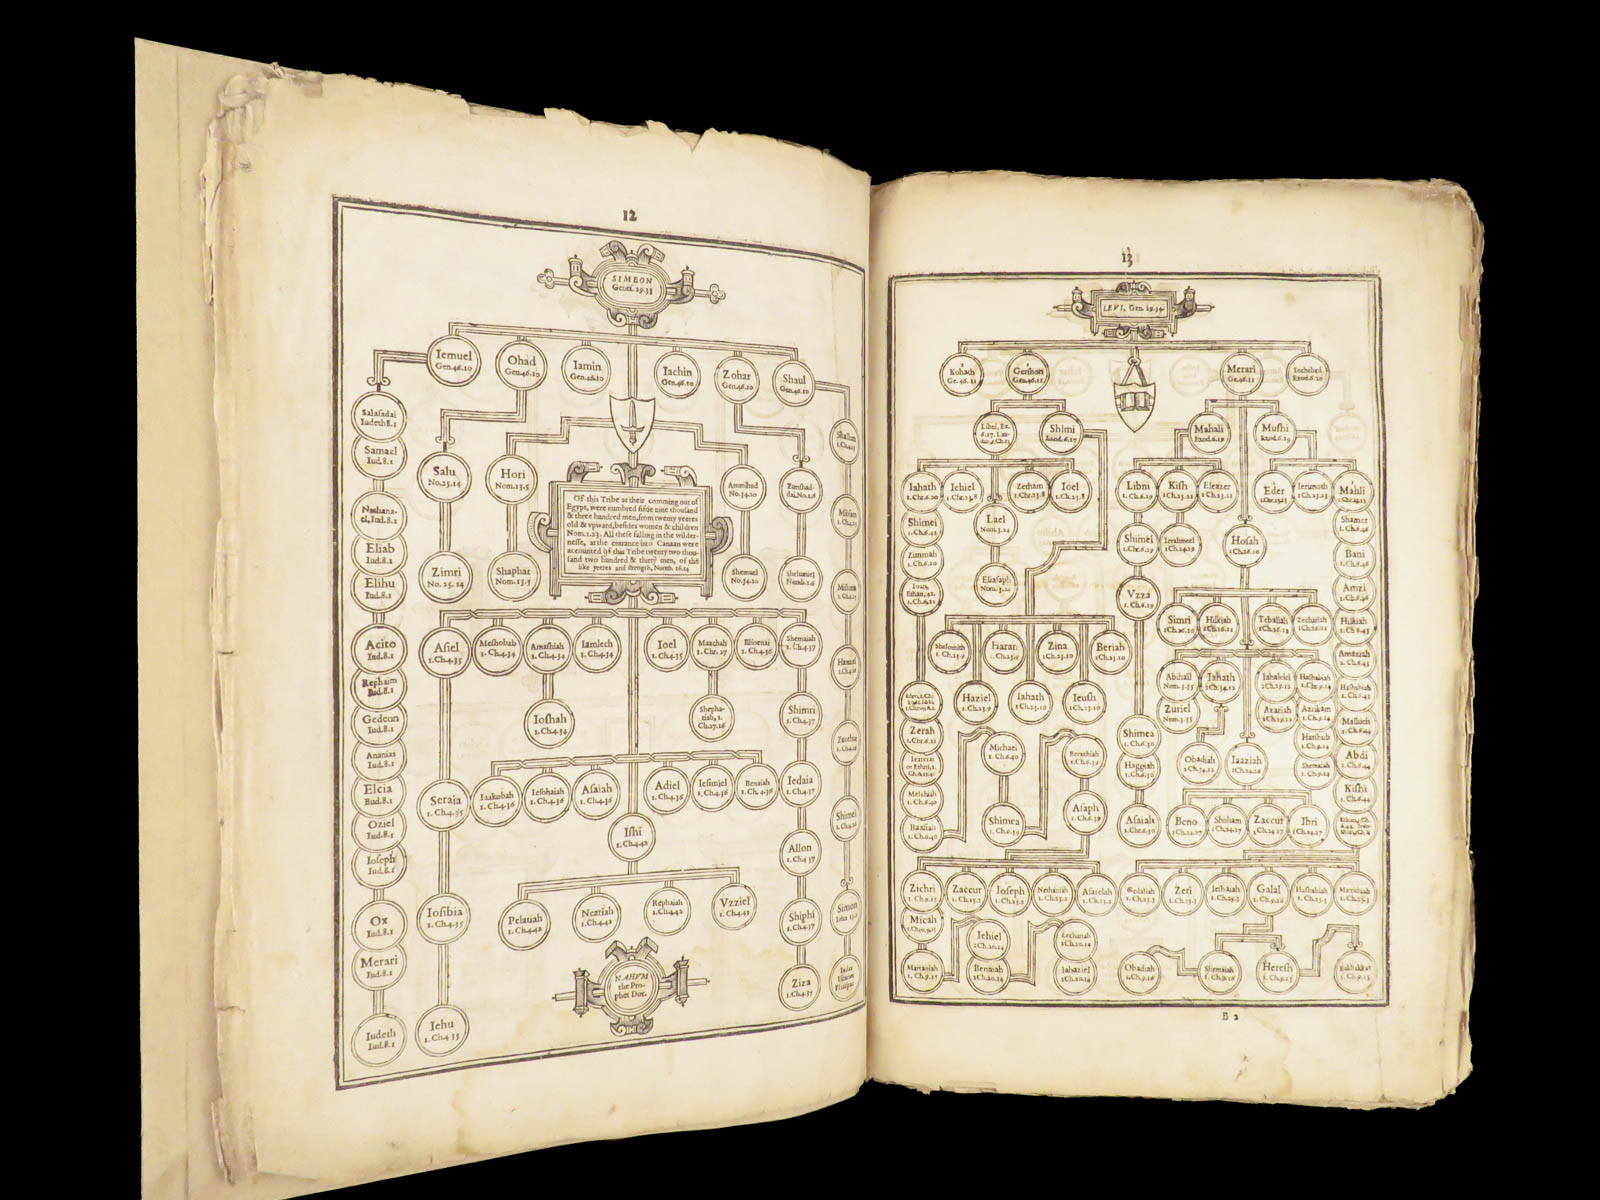 12
SIMEON
Genes. 29.33
Iemuel
Gen.46.10
Ohad
Gen.46.10
Iamin
Gen.46.10
Iachin
Gen.46.10
Zohar
Gen.46.10
Shaul
Gen.46.10
Salasadai
Iudeth 8.1
Samael
Iud.8.1
Nathana-
el, Iud.8.1
Eliab
Iud.8.1
Elihu
Iud.8.1
Acito
Iud.8.1
Rephaim
Iud.8.1
Gedeon
Iud.8.1
Ananias
Iud.8.1
Elcia
Iud.8.1
Oziel
Iud.8.1
Ioseph
Iud.8.1
Ox
Iud.8.1
Merari
Iud.8.1
Iudeth
Iud.8.1
Salu
No.25.14
Zimri
No. 25. 14
Hori
Nom.13.5
Shaphat
Nom.13.5
Ammihud
No.34.20
Shemuel
No.34.20
Zurishad-
dai.No.1.6
Shelumiel
Numb.1.6
Of this Tribe at their comming out of
Egypt, were numbred fiftie nine thousand
& three hundred men, from twenty yeeres
old & vpward, besides women & children
Nom.1.23. All these falling in the wilder-
nesse, at the entrance into Canaan were
accounted of this Tribe twenty two thou-
sand two hundred & thirty men, of the
like yeeres and strength, Numb. 26.14
Asiel
1.Ch.4.35
Meshobab
1. Ch.4.34
Amashiah
1. Ch.4.34
Iamlech
1. Ch.4.34
Ioel
1. Ch.4.35
Maachah
1. Chr. 27
Elioenai
1. Ch.4.36
Shemaiah
1. Ch.4.37
Ioshah
1. Ch.4.34
Shepha-
tiah, 1.
Ch.27.16
Shimri
1. Ch.4.37
Seraia
1. Ch.4.35
Iaakobah
1. Ch.4.36
Iesohaiah
1. Ch.4.36
Asaiah
1. Ch.4.36
Adiel
1. Ch.4.36
Iesimiel
1. Ch.4.36
Benaiah
1. Ch.4.36
Iedaia
1. Ch.4.37
Ishi
1. Ch.4.42
Allon
1. Ch.4.37
Iosibia
1. Ch.4.35
Pelatiah
1. Ch.4.42
Neariah
1. Ch.4.42
Rephaiah
1. Ch.4.42
Vzziel
1. Ch.4.42
Shiphi
1. Ch.4.37
Iehu
1. Ch.4.35
NAHVM
the Pro-
phet Dor.
Ziza
1. Ch.4.37
Shallum
Mibsam
Mishma
Hamuel
Zacchur
Shimei
Simon
13
LEVI, Gen. 29.34
Kohath
Ge. 46. 11
Gershon
Gen.46.11
Merari
Ge.46.11
Iochebed
Exod.6.20
Libni, Ex.
Shimi
Exod.6.17
Mahali
Exod.6.19
Mushi
Exod.6.19
Iahath
1.Chr.6.20
Iehiel
1.Ch.23.8
Zetham
1.Ch.23.8
Ioel
1.Ch.23.8
Libni
1. Ch.6.29
Kish
1. Ch.23.21
Eleazer
1. Ch.23.21
Eder
Ierimoth
1.Ch.23.23
Mahli
Shimei
1. Ch.6.42
Lael
Nom.3.24
Shamer
1. Ch.6.46
Zimmah
1. Ch.6.20
Shimei
1. Ch.6.29
Ierahmeel
1.Ch.24.29
Hosah
1.Ch.26.10
Bani
1. Ch.6.46
Eliasaph
Nom.3.24
Amzi
1. Ch.6.46
Vzza
1. Ch.6.29
Hilkiah
1. Ch.6.45
Shelomith
1. Ch.23.9
Haran
1. Ch.23.9
Zina
1. Ch.23.10
Beriah
1. Ch.23.10
Simri
1.Ch.26.10
Hilkiah
1.Ch.26.11
Tebaliah
1.Ch.26.11
Techariah
1.Ch.26.11
Amaziah
1. Ch.6.45
Haziel
1. Ch.23.9
Iahath
1. Ch.23.10
Ieush
1. Ch.23.10
Abihail
Nom. 3.35
Iahath
2.Ch.34.12
Hashabiah
1. Ch.6.45
Zuriel
Nom. 3.35
Azariah
Azrikam
1. Ch.9.14
Malluch
Zerah
1. Chr.6.21
Michael
1. Ch.6.40
Berachiah
1. Ch.6.39
Shimea
1. Ch.6.30
Hashub
1. Ch.9.14
Abdi
1. Ch.6.44
Haggiah
1. Ch.6.30
Obadiah
2.Ch.34.12
Iaaziah
1.Ch.24.26
Shemaiah
1. Ch.9.14
Kishi
1. Ch.6.44
Melchiah
1. Ch.6.40
Baasiah
1. Ch.6.40
Shimea
1. Ch.6.39
Asaph
1. Ch.6.39
Asaiah
1. Ch.6.30
Beno
1. Ch.24.27
Shoham
1. Ch.24.27
Zaccur
1. Ch.24.27
Ibri
1. Ch.24.27
Zichri
1. Ch.9.15
Zaccur
1. Ch.25.2
Ioseph
1. Ch.25.2
Nethaniah
1. Ch.25.2
Asarelah
1. Ch.25.2
Gedaliah
1. Ch.25.3
Zeri
1. Ch.25.3
Ieshaiah
1. Ch.25.3
Galal
1. Ch.9.16
Hashabiah
1. Ch.25.3
Mattithiah
1. Ch.25.3
Micah
1. Ch.9.15
Mattaniah
1. Ch.9.15
Iehiel
2.Ch.20.14
Benaiah
2.Ch.20.14
Zechariah
2.Ch.20.14
Iahaziel
2.Ch.20.14
Obadiah
1. Ch.9.16
Shemaiah
1. Ch.9.16
Heresh
1. Ch.9.15
Bakbakkar
1. Ch.9.15
B 2